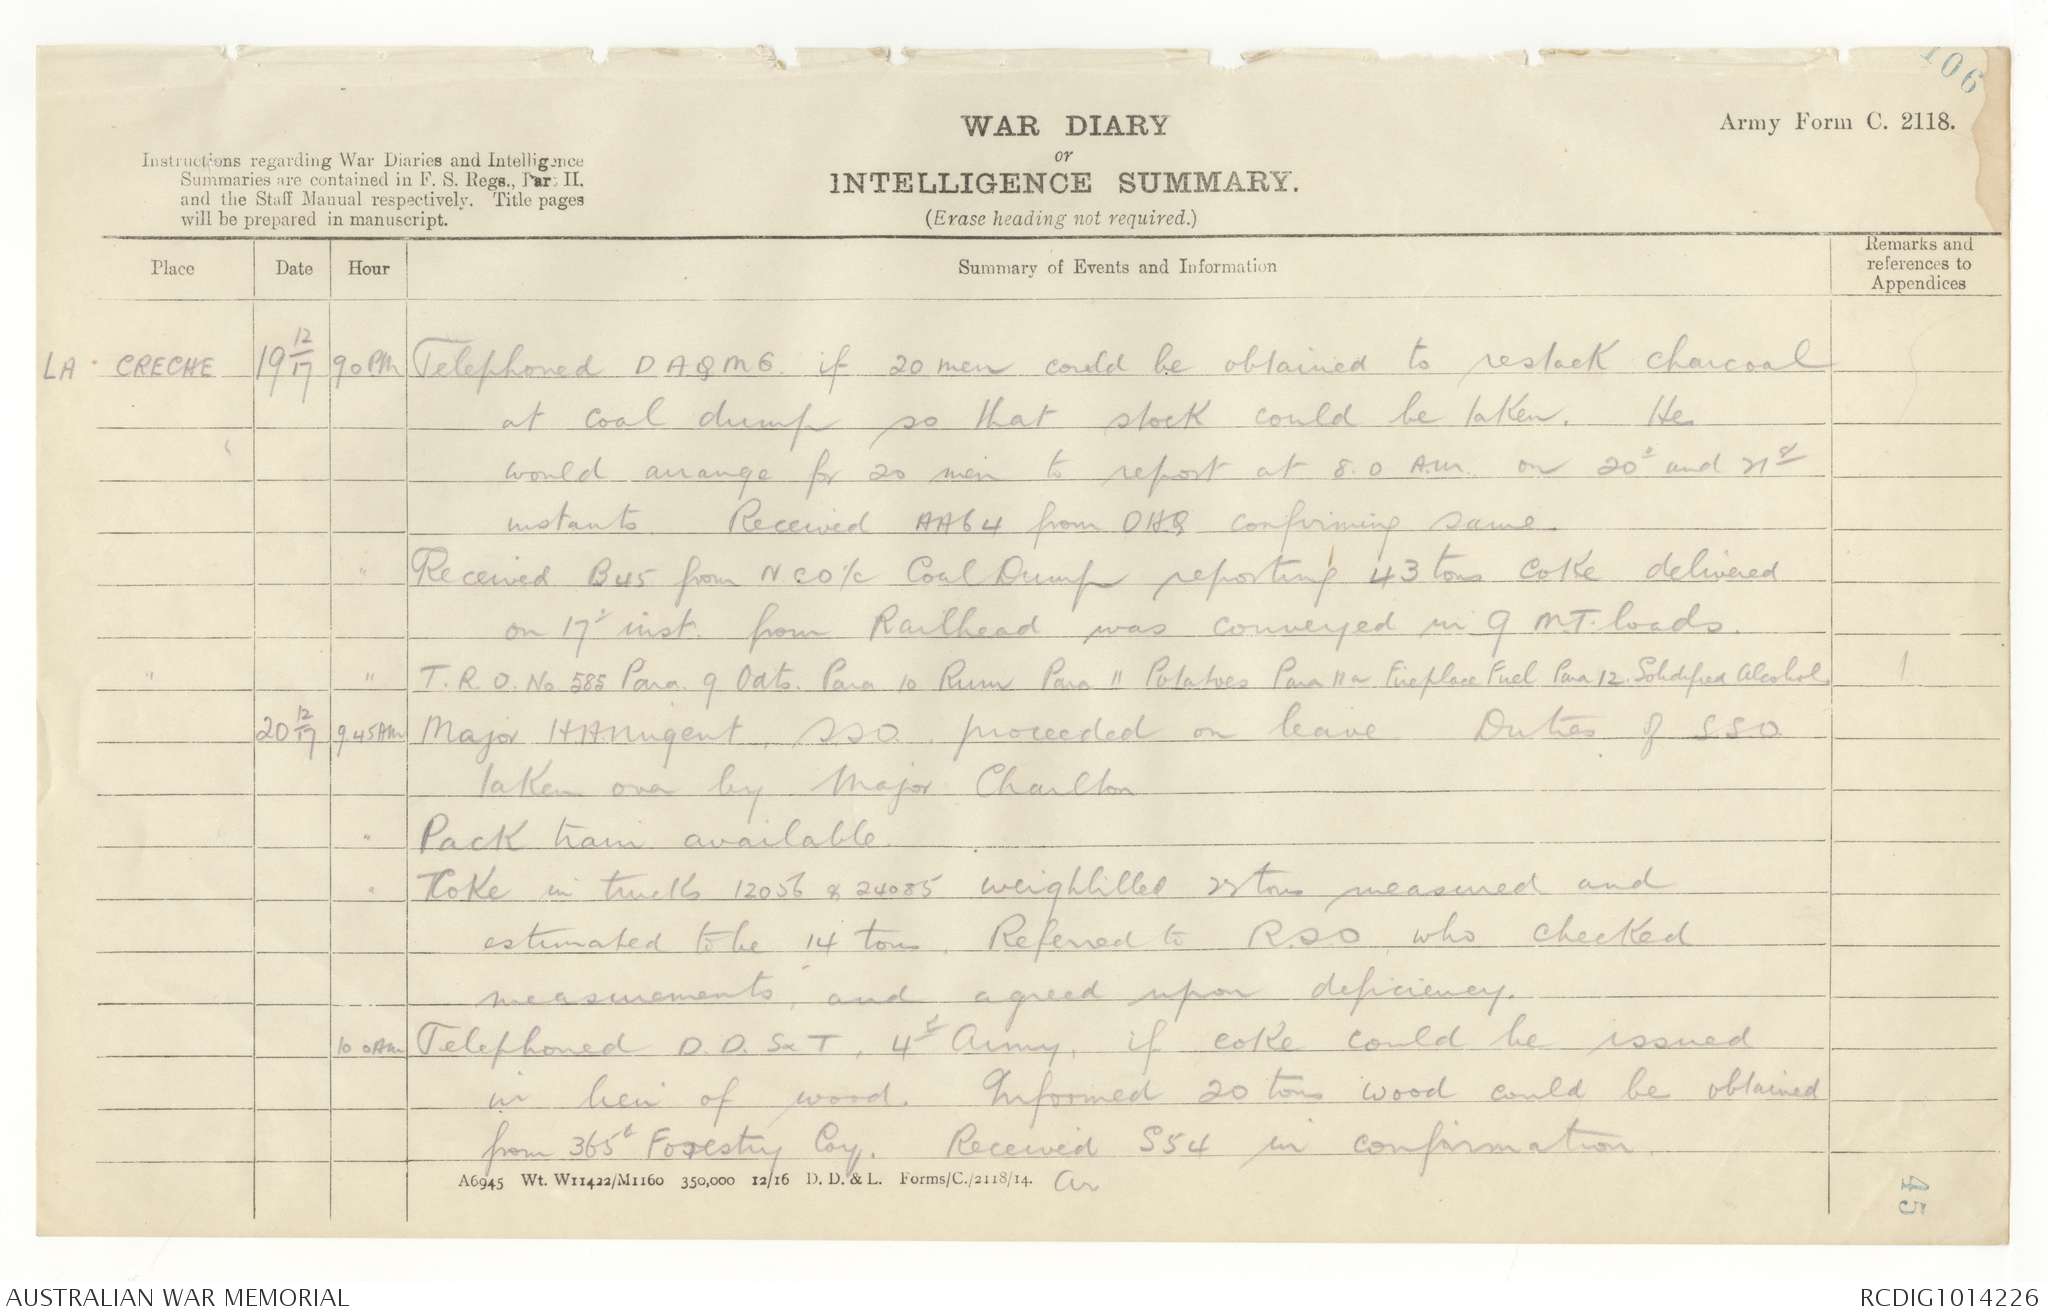 106
WAR DIARY
or
INTELLIGENCE SUMMARY.
(Erase heading not required.)
Army Form C. 2118.
Instructions regarding War Diaries and Intelligence
Summaries are contained in F. S. Regs., Part II.
and the Staff Manual respectively. Title pages
will be prepared in manuscript.
Place Date Hour Summary of Events and Information Remarks and references to Appendices
LA CRECHE 19 12/17 9 0 PM Telephoned DAQMG. if 20 men could be obtained to restack charcoal
at coal dump so that stock could be taken. He
would arrange for 20 men to report at 8.0 A.M. on 20 and 21st
instants Received AA64 from DHQ confirming same.
" Received B45 from NCO i/c Coal Dump reporting 43 tons coke delivered
on 17 inst. from Railhead was conveyed in 9 M.T. loads.
" " T.R.O. No 585 Para. 9 Oats. Para 10 Rum Para 11 Potatoes Para 11a Fireplace Fuel Para 12. Solidified Alcohol 1
20 12/17 9 45 AM Major HA Nugent, SSO. proceeded on leave Duties of SSO
taken over by Major Charlton
" Pack train available.
" Coke in trucks 12056 & 24085 weighbilled tons measured and
estimated to be 14 tons. Referred to R.S.O who checked
measurements, and agreed upon deficiency.
10 0 AM Telephoned D.D.S&T, 4th Army, if coke could be issued
in lieu of wood. Informed 20 tons wood could be obtained
from 365th Forestry Coy. Received S54 in confirmation.
A6945 Wt. W11422/M1160 350,000 12/16 D. D. & L. Forms/C./2118/14.
45
AUSTRALIAN WAR MEMORIAL RCDIG1014226